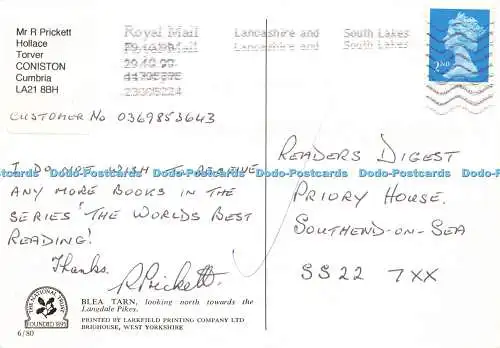 Mr R Prickett
Hollace
Torver
CONISTON
Cumbria
LA21 8BH
CUSTOMER No 0369853643
Royal Mail
Lancashire and South Lakes
Lancashire and South Lakes
2ND
I DO NOT WISH TO RECEIVE
ANY MORE BOOKS IN THE
SERIES "THE WORLDS BEST
READING!
Thanks.
R Prickett.
READERS DIGEST
PRIORY HOUSE.
SOUTHEND-ON-SEA
SS22 7XX
Dodo-Postcards Dodo-Postcards Dodo-Postcards Dodo-Postcards Dodo-Postcards
BLEA TARN, looking north towards the
Langdale Pikes.
PRINTED BY LARKFIELD PRINTING COMPANY LTD
BRIGHOUSE, WEST YORKSHIRE
THE NATIONAL TRUST
FOUNDED 1895
6/80